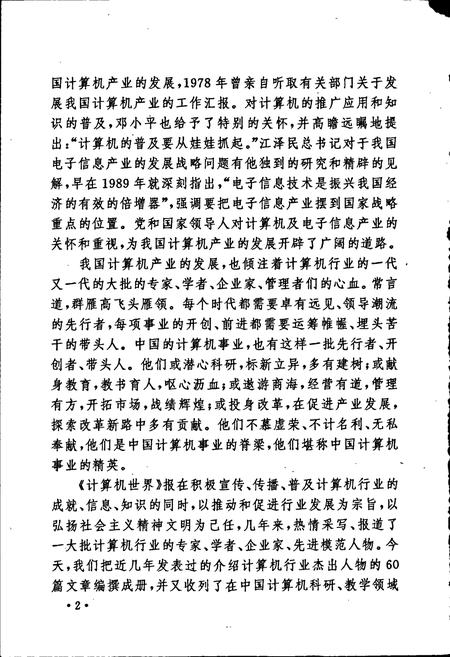 国计算机产业的发展,1978年曾亲自听取有关部门关于发
展我国计算机产业的工作汇报。对计算机的推广应用和知
识的普及,邓小平也给予了特别的关怀,并高瞻远瞩地提
出:“计算机的普及要从娃娃抓起。”江泽民总书记对于我国
电子信息产业的发展战略问题有他独到的研究和精辟的见
解,早在1989年就深刻指出,“电子信息技术是振兴我国经
济的有效的倍增器”,强调要把电子信息产业摆到国家战略
重点的位置。党和国家领导人对计算机及电子信息产业的
关怀和重视,为我国计算机产业的发展开辟了广阔的道路。
我国计算机产业的发展,也倾注着计算机行业的一代
又一代的大批的专家、学者、企业家、管理者们的心血。常言
道,群雁高飞头雁领。每个时代都需要卓有远见、领导潮流
的先行者,每项事业的开创、前进都需要运筹帷幄、埋头苦
干的带头人。中国的计算机事业,也有这样一批先行者、开
创者、带头人。他们或潜心科研,标新立异,多有建树;或献
身教育,教书育人,呕心沥血;或遨游商海,经营有道,管理
有方,开拓市场,战绩辉煌;或投身改革,在促进产业发展,
探索改革新路中多有贡献。他们不慕虚荣、不计名利、无私
奉献,他们是中国计算机事业的脊梁,他们堪称中国计算机
事业的精英。
《计算机世界》报在积极宣传、传播、普及计算机行业的
成就、信息、知识的同时,以推动和促进行业发展为宗旨,以
弘扬社会主义精神文明为己任,几年来,热情采写、报道了
一大批计算机行业的专家、学者、企业家、先进模范人物。今
天,我们把近几年发表过的介绍计算机行业杰出人物的60
篇文章编撰成册,并又收列了在中国计算机科研、教学领域
·2·